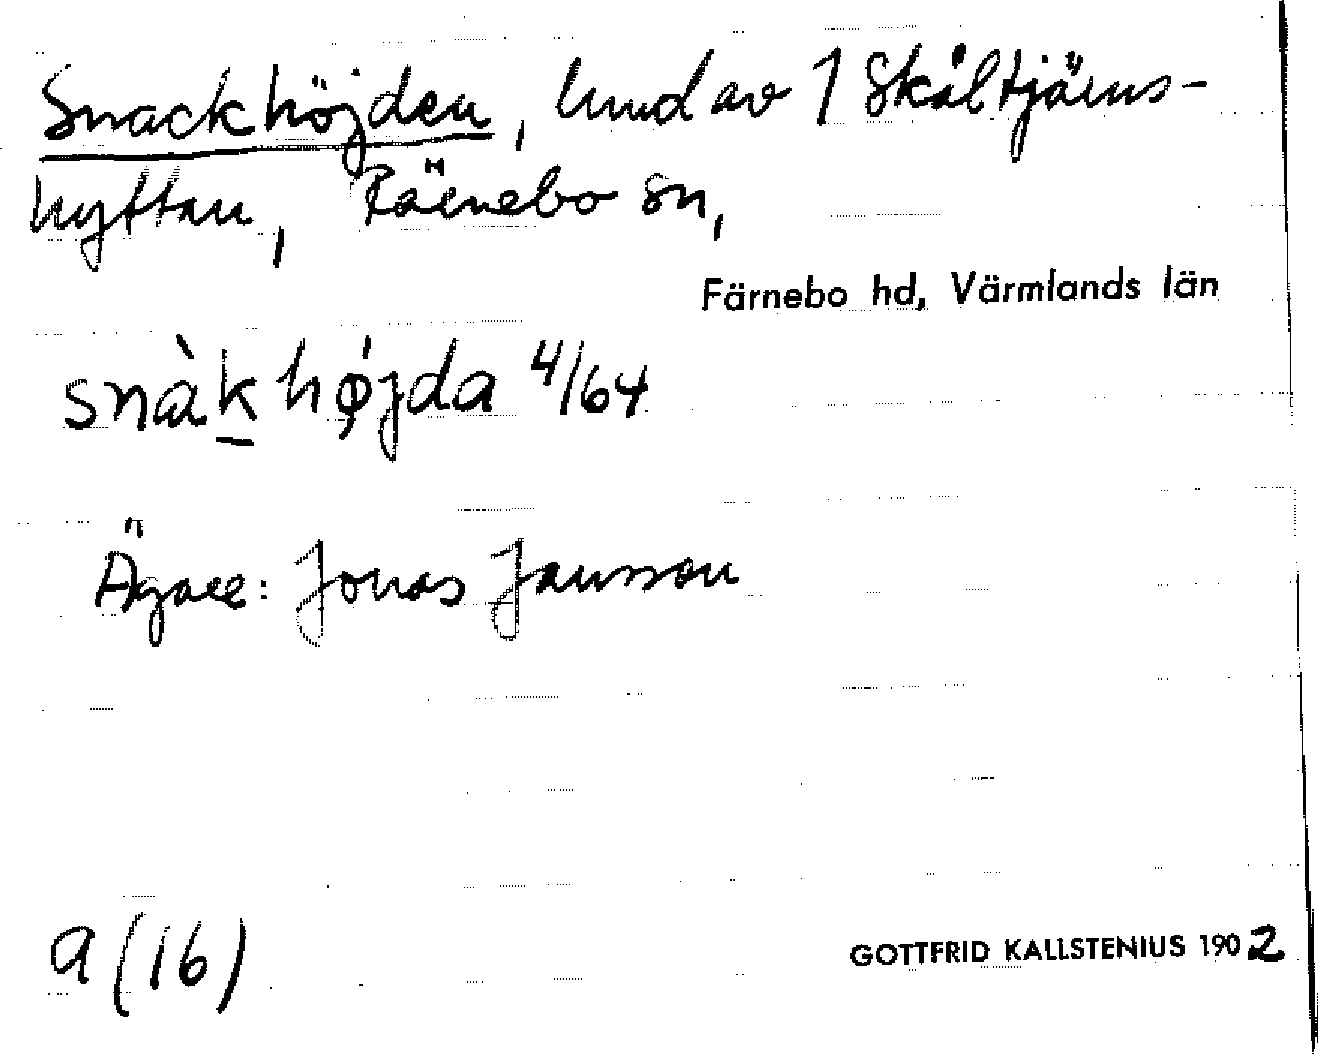 Snackhöjden, hmd av 1 Skåltjärns-
hyttan, Färnebo sn,
Färnebo hd, Värmlands län
snàkhǿ̨jda 4/64
Ägare: Jonas Jansson
a (16)
GOTTFRID KALLSTENIUS 1902